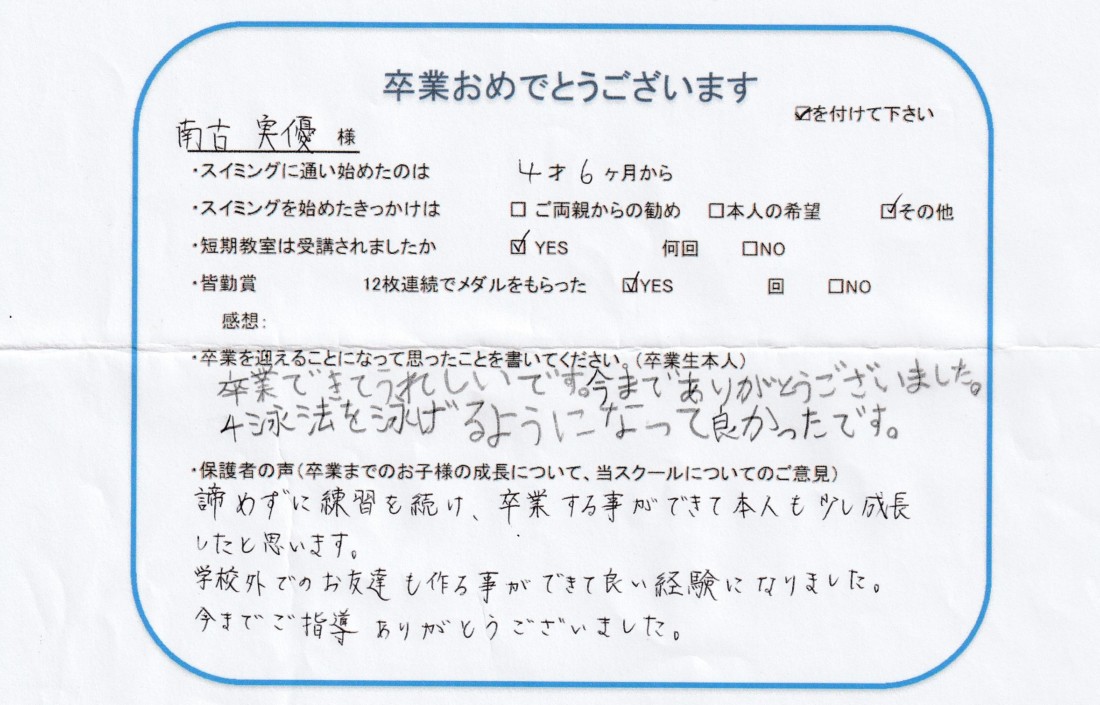 卒業おめでとうございます
☑を付けて下さい
南古 実優 様
・スイミングに通い始めたのは 4才6ヶ月から
・スイミングを始めたきっかけは □ ご両親からの勧め □本人の希望 ☑その他
・短期教室は受講されましたか ☑ YES 何回 □NO
・皆勤賞 12枚連続でメダルをもらった ☑YES 回 □NO
感想:
・卒業を迎えることになって思ったことを書いてください。(卒業生本人)
卒業できてうれしいです。今までありがとうございました。
4泳法を泳げるようになって良かったです。
・保護者の声(卒業までのお子様の成長について、当スクールについてのご意見)
諦めずに練習を続け、卒業する事ができて本人も少し成長
したと思います。
学校外でのお友達も作る事ができて良い経験になりました。
今までご指導ありがとうございました。